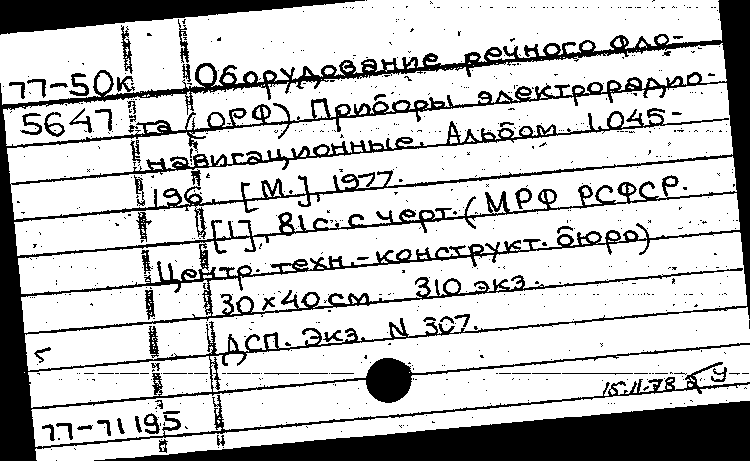 77-50к Оборудование речного фло-
5647 та (ОРФ). Приборы электрорадио-
навигационные. Альбом. 1.045-
196. [М.], 1977.
[1], 81с. с черт. (МРФ РСФСР.
Центр. техн.-конструкт. бюро)
30×40 см. 310 экз.
ДСП. Экз. N 307.
15-11-78
77-71195